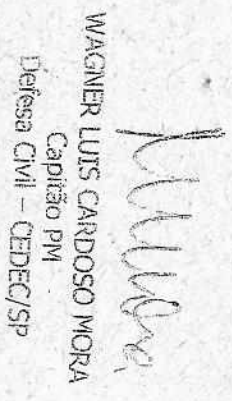 WAGNER LUIS CARDOSO MORA
Capitão PM
Defesa Civil - CEDEC/SP